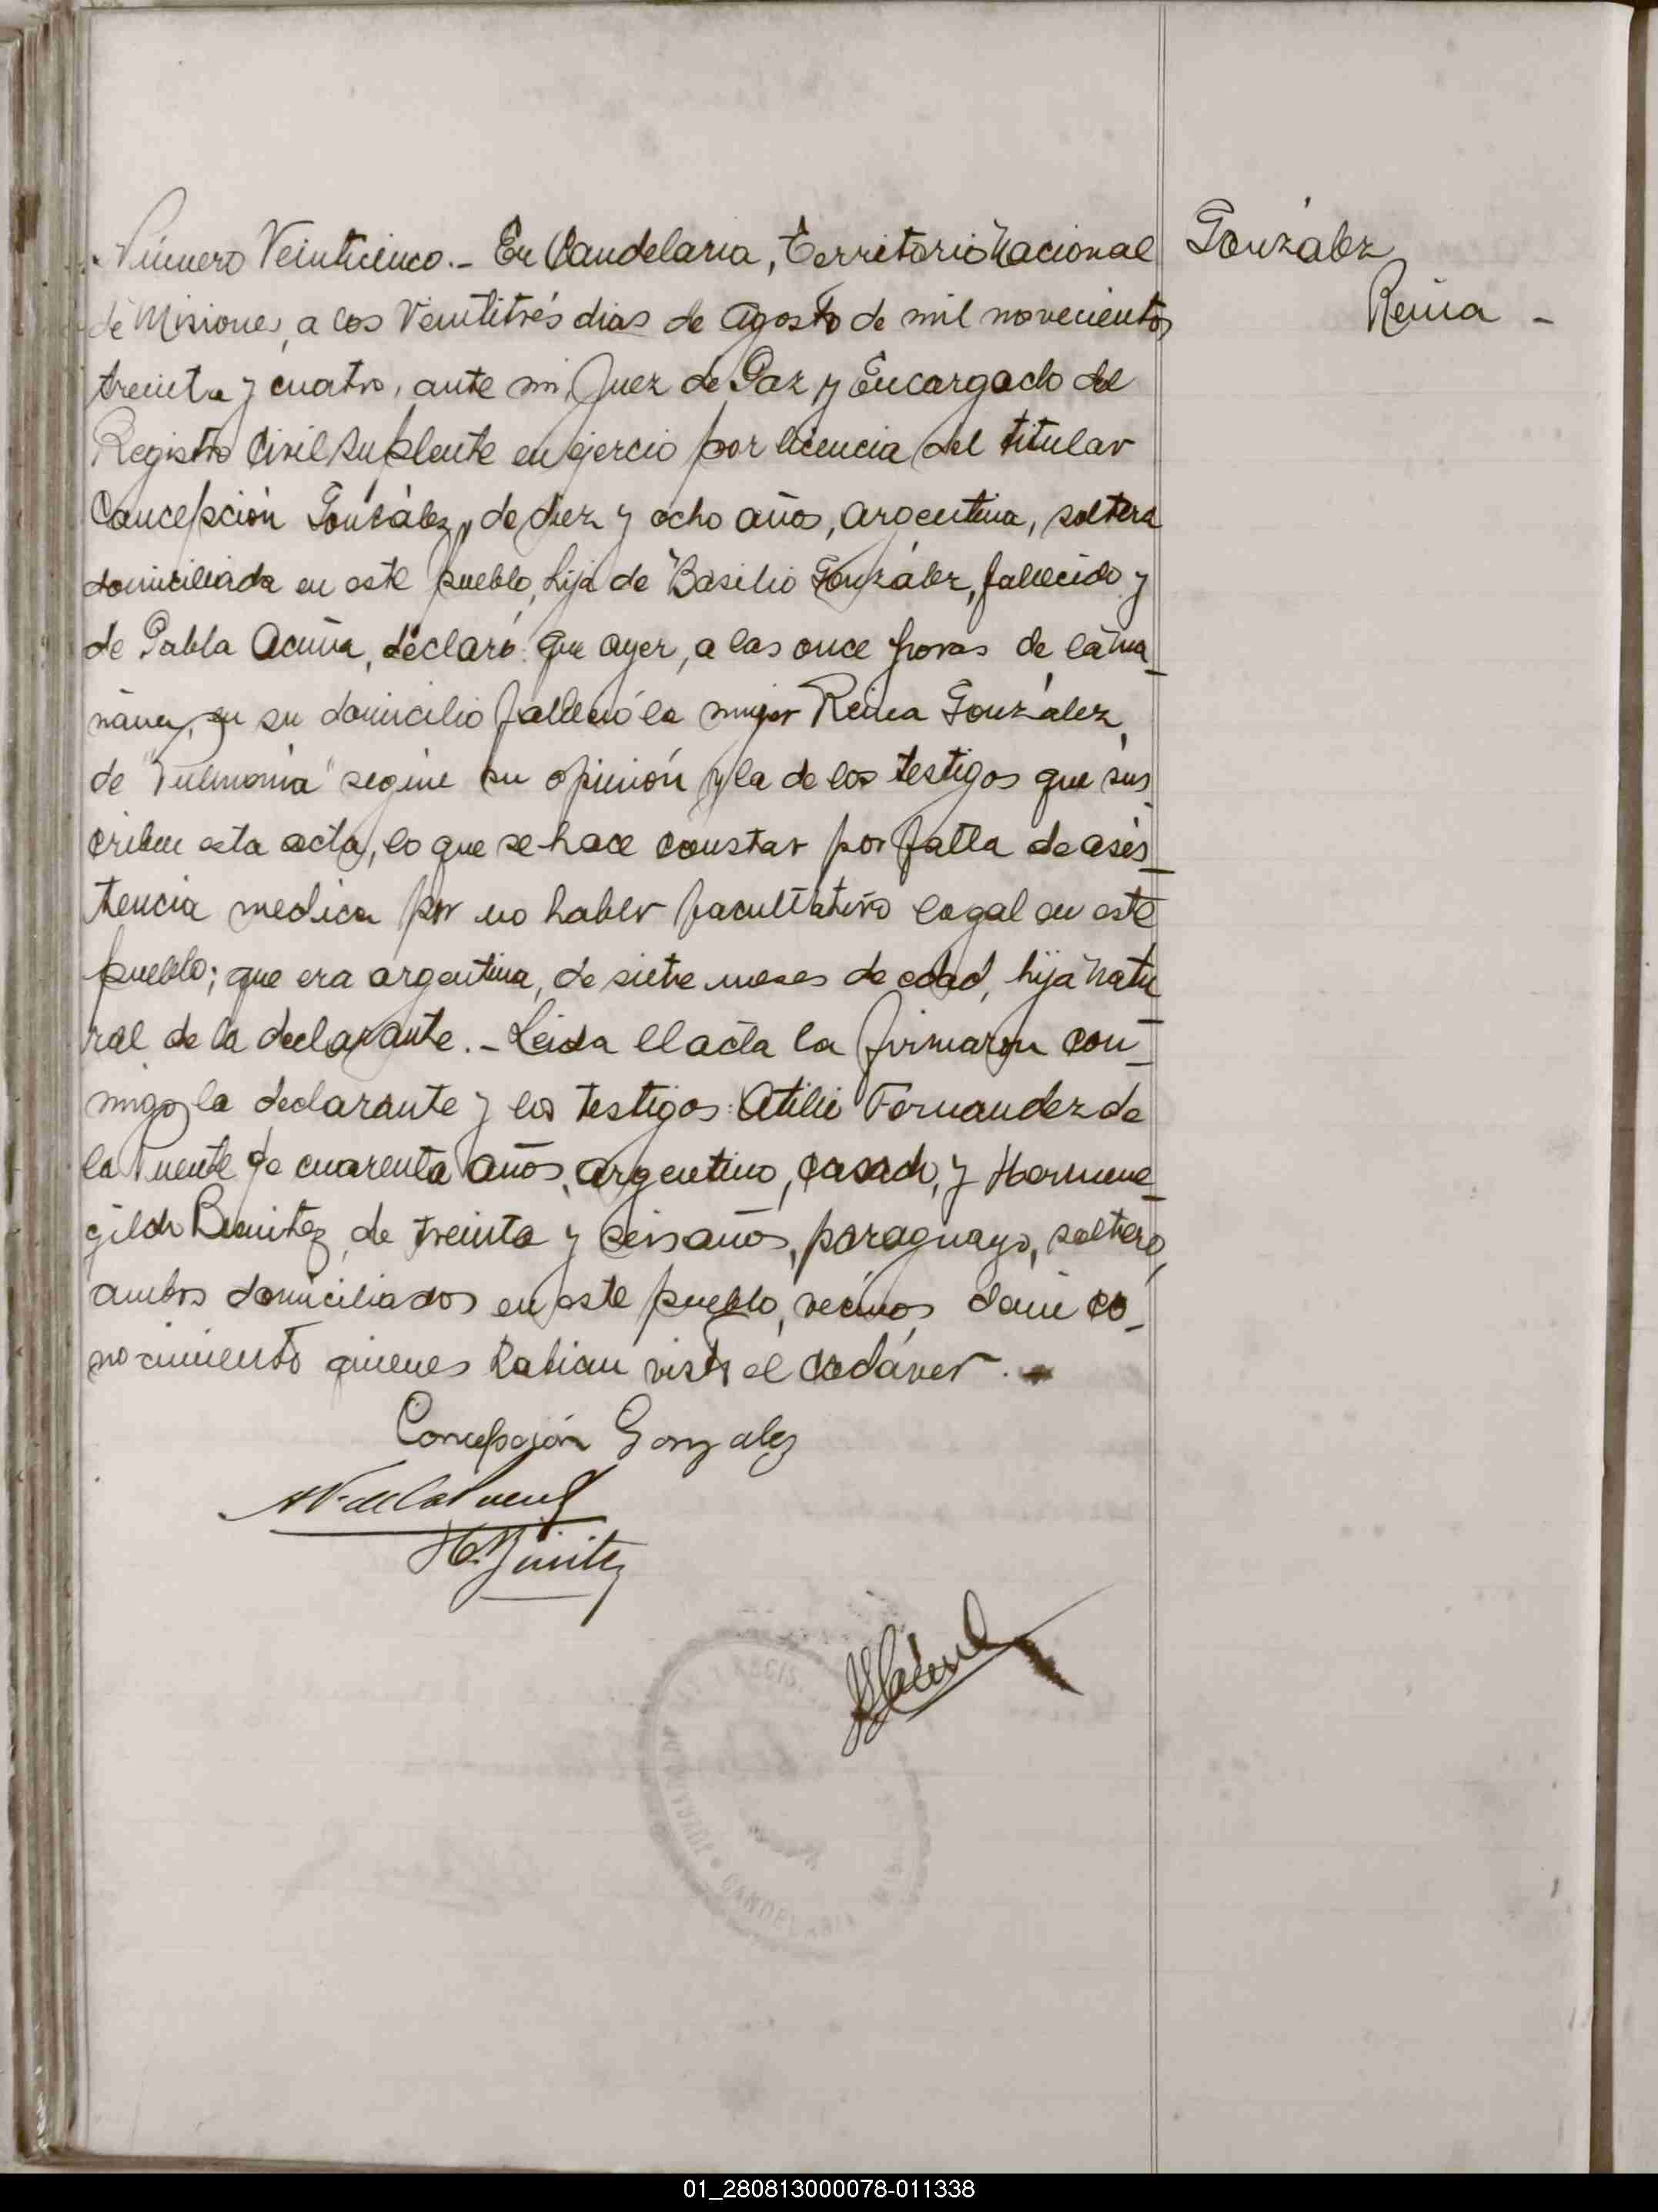 Número Veinticinco.- En Candelaria, Territorio Nacional
de Misiones, a los Veintitrés dias de Agosto de mil novecientos
treinta y cuatro, ante mi, Juez de Paz y Encargado del
Registro Civil Suplente en ejercio por licencia del titular
Concepción González, de diez y ocho años, argentina, soltera
domiciliada en este pueblo, hija de Basilio González, fallecido y
de Pabla Acuña, declaró: que ayer, a las once horas de la ma_
ñana, en su domicilio falleció la mujer Reina González,
de "Pulmonia" según su opinión y la de los testigos que sus_
criben esta acta, lo que se hace constar por falta de asis_
tencia medica por no haber facultativo legal en este
pueblo; que era argentina, de siete meses de edad, hija natu_
ral de la declarante.- Leida el acta la firmaron con_
migo, la declarante y los testigos: Atilio Fernandez de
la Puente de cuarenta años, argentino, casado, y Hermene_
gildo Benitez, de treinta y seis años, paraguayo, soltero,
ambos domiciliados en este pueblo, vecinos de mi co_
nocimiento quienes habian visto el cadáver.-
Concepción Gonzalez
A F. de la Puente
H. Binitez
González
Reina -
CANDELARIA
01_280813000078-011338